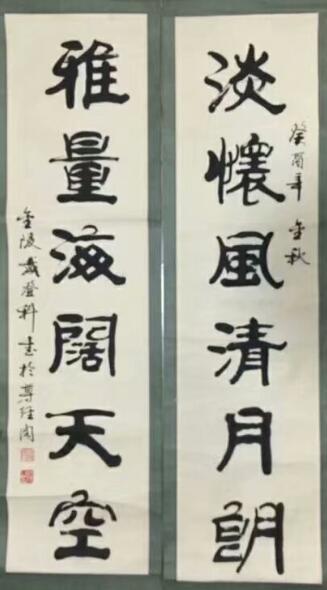 淡懷風清月朗
癸酉年金秋
雅量海闊天空
金陵戴登科書於尊經閣